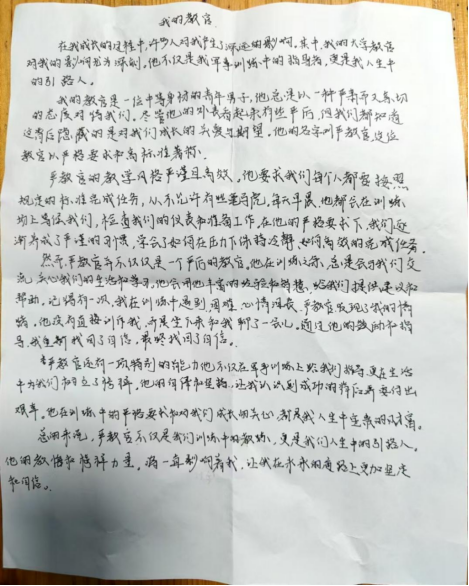 我的教官
在我成长的过程中,许多人对我产生了深远的影响。其中,我的大学教官
对我的影响尤为深刻。他不仅是我军事训练中的指导者,更是我人生中
的引路人。
我的教官是一位中等身材的青年男子,他总是以一种严肃而又亲切
的态度对待我们。尽管他的外表看起来有些严厉,但我们都知道
这背后隐藏的是对我们成长的关爱与期望。他的名字叫严教官,这位
教官以严格要求和高标准著称。
严教官的教学风格严谨且高效。他要求我们每个人都要按照
规定的标准完成任务,从不允许有丝毫马虎。每天早晨,他都会在训练
场上等候我们,检查我们的仪表和准备工作。在他的严格要求下,我们逐
渐养成了严谨的习惯,学会了如何在压力下保持冷静,如何高效的完成任务。
然而,严教官并不仅仅是一个严厉的教官。他在训练之余,总是会与我们交
流,关心我们的生活和学习。他会用他丰富的经验和智慧,给我们提供建议和
帮助。记得有一次,我在训练中遇到困难,心情沮丧。严教官发现了我的情
绪,他没有直接训斥我,而是坐下来和我聊了一会儿。通过他的鼓励和指
导,我重新找回了自信,最终找回了自信。
严教官还有一项特别的能力,他不仅在军事训练上给我们指导,更在生活
中为我们树立了榜样,他的自律和坚持,让我认识到成功的背后需要付出
艰辛,他在训练中的严格要求和对我们成长的关心,都是我人生中宝贵的财富。
总的来说,严教官不仅是我们训练中的教练,更是我们人生中的引路人。
他的教悔和榜样力量,将一直影响着我,让我在未来的道路上更加坚定
和自信。